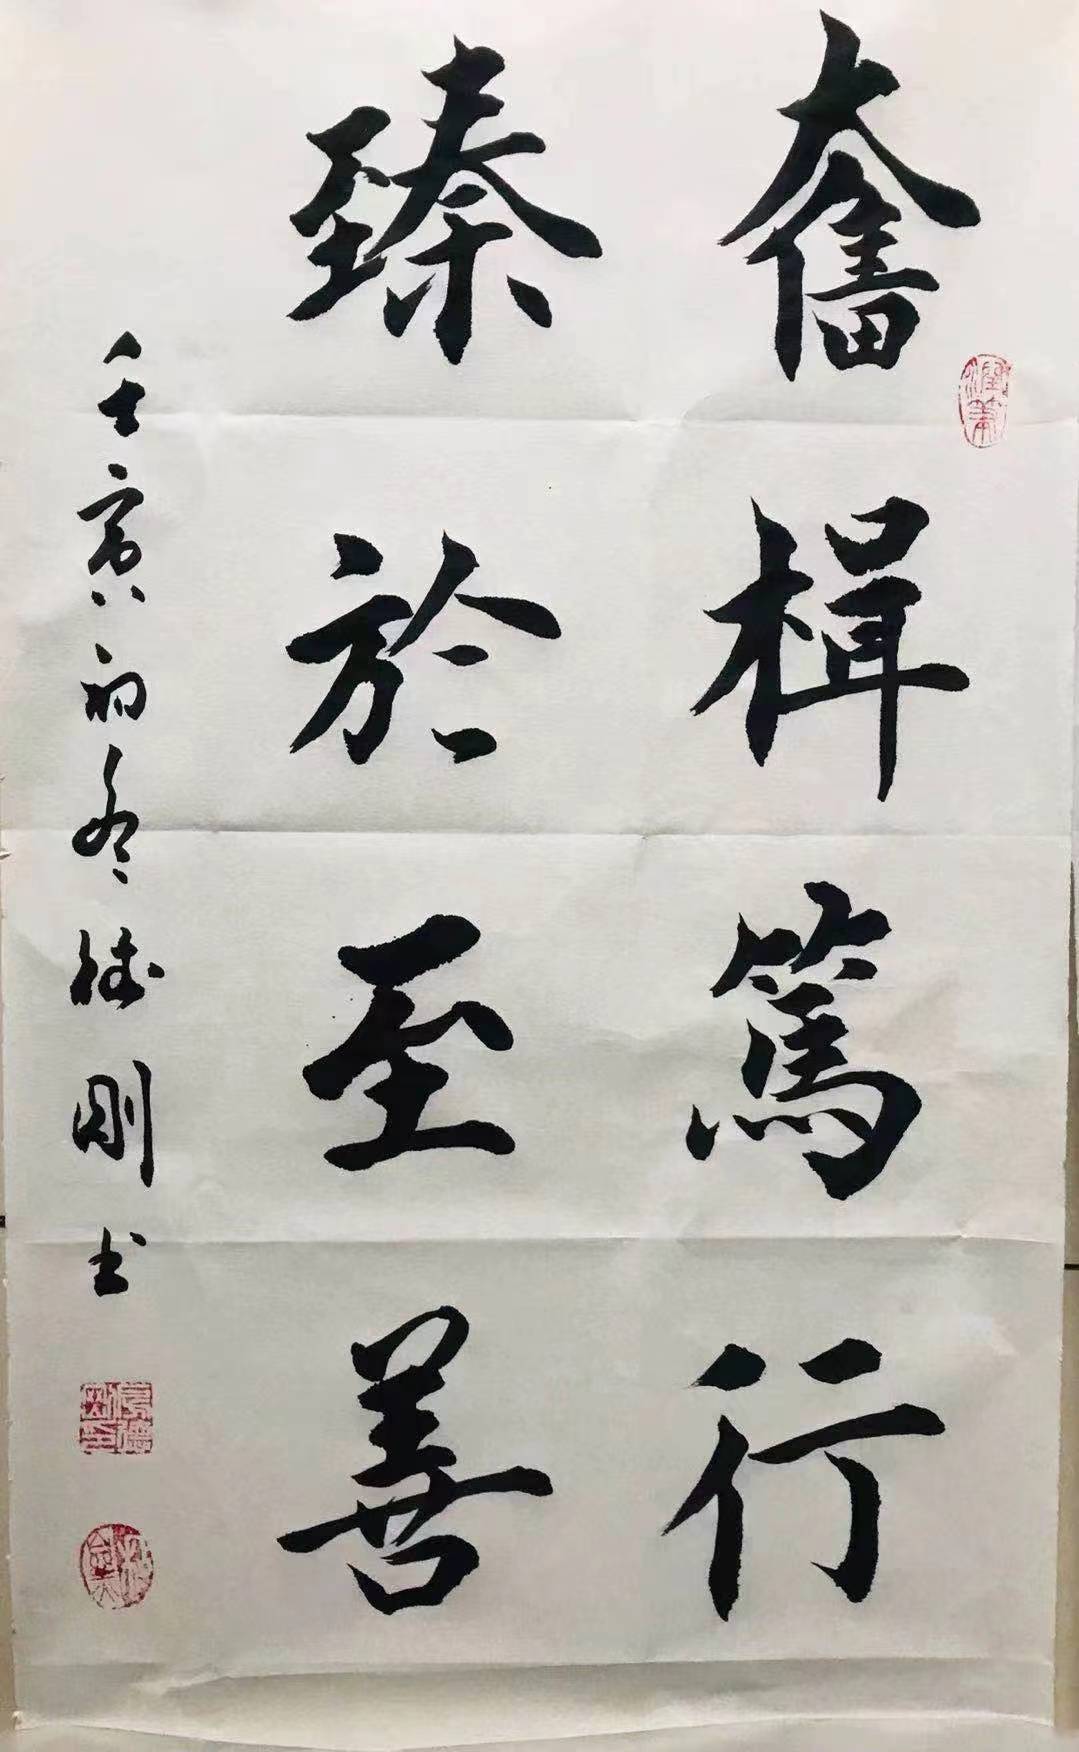 奮楫篤行
臻於至善
壬寅初冬德剛书